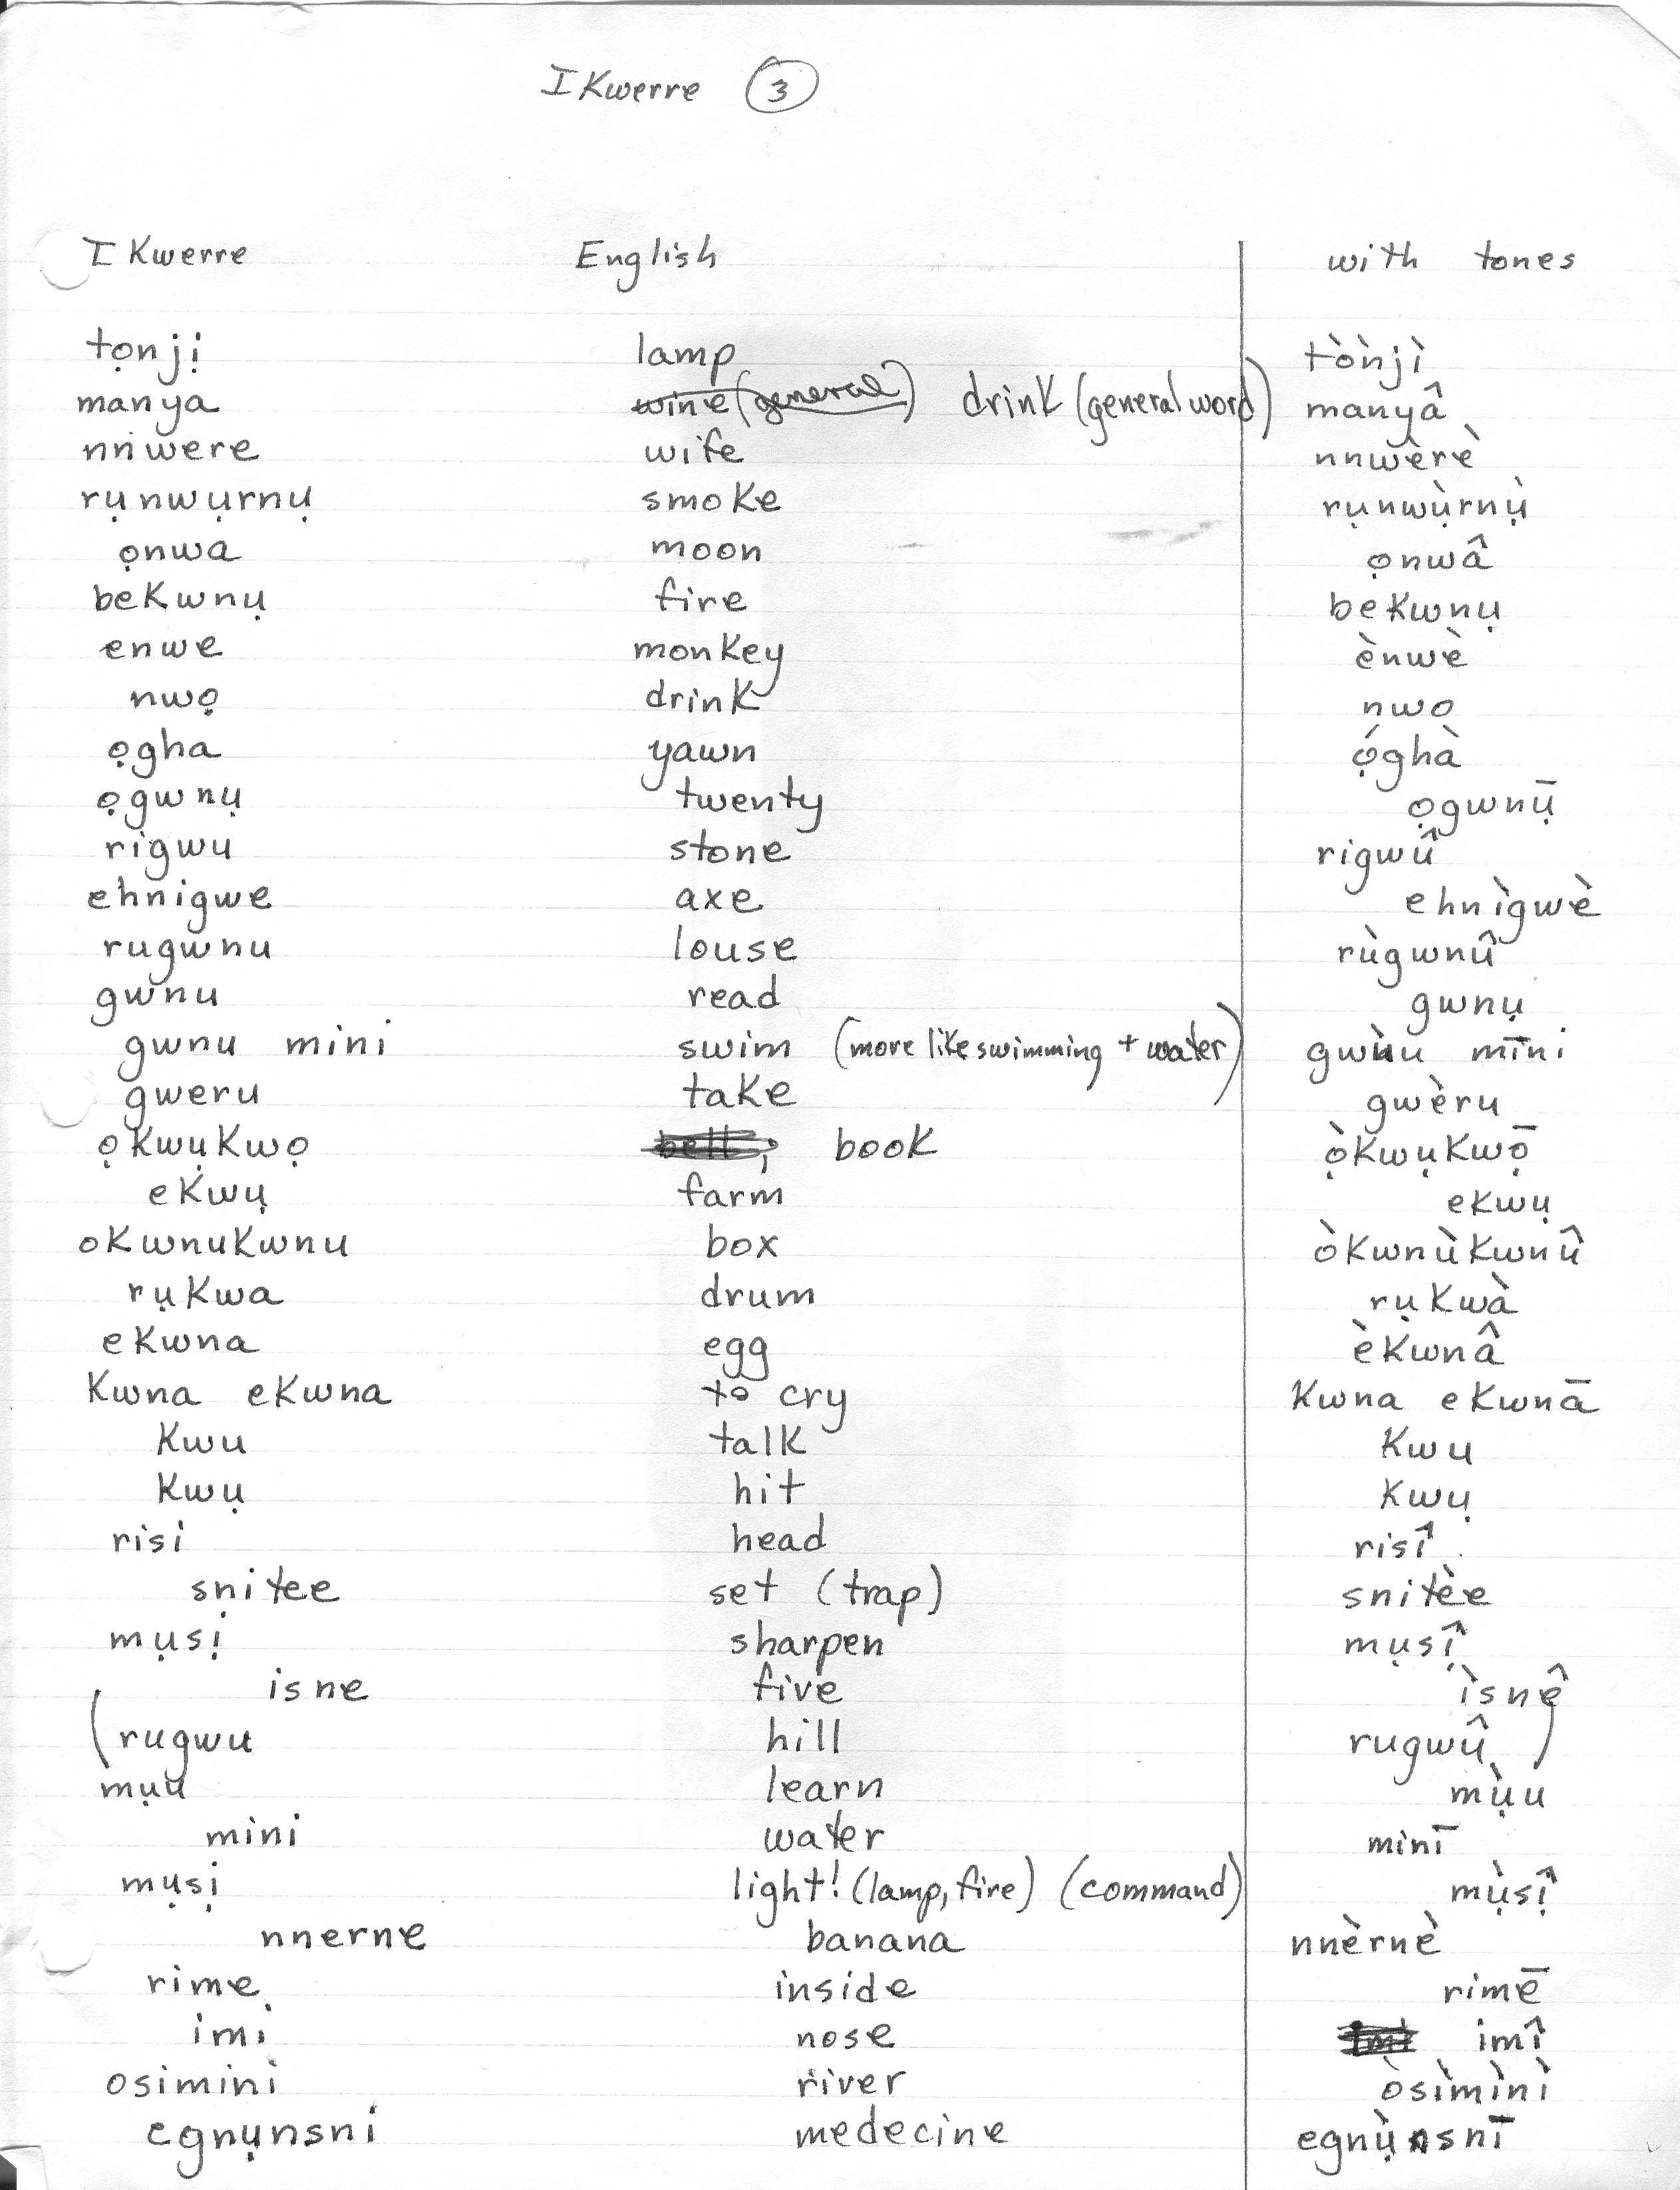 IKwerre 3
IKwerre English with tones
tọnjị lamp tọ̀ǹjì
manya wine (general) drink (general word) manyâ
nnwere wife nnwèrè
rụnwụrnụ smoke rụnwụ̀rnụ̀
ọnwa moon ọnwâ
bekwnụ fire bekwnụ
enwe monkey ènwè
nwọ drink nwo
ọgha yawn ọ́ghà
ọgwnụ twenty ọgwnụ̄
rigwu stone rigwû
ehnigwe axe ehnìgwè
rugwnu louse rùgwnû
gwnu read gwnụ
gwnu mini swim (more like swimming + water) gwnu mīni
gweru take gwèru
ọkwụkwọ book ọ̀kwụkwọ̄
ekwụ farm ekwụ
okwnukwnu box òkwnùkwnû
rụkwa drum rụkwà
ekwna egg èkwnâ
kwna ekwna to cry kwna ekwnā
kwu talk kwu
kwụ hit kwụ
risi head risî
snitee set (trap) snitèe
mụsị sharpen mụsị̂
isne five ìsnê
(rugwu hill rugwû)
mụu learn mụ̀u
mini water minī
mụsị light! (lamp, fire) (command) mụ̀sị̂
nnerne banana nnèrnè
rime inside rimē
imi nose imî
osimini river òsìmìnì
egnụnsni medecine egnụ̀nsnī